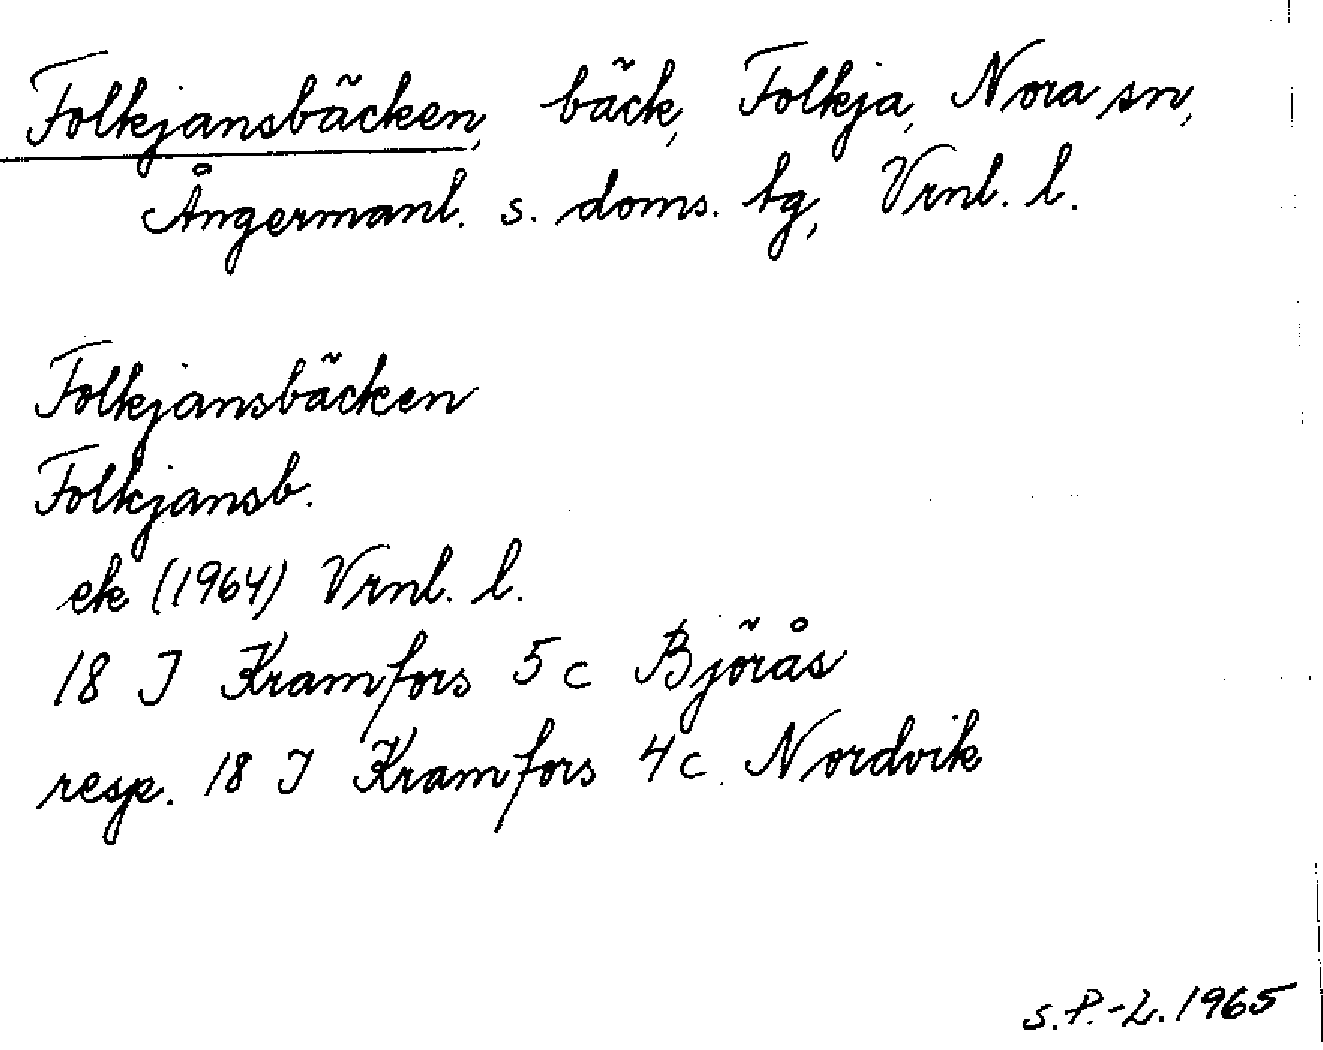 Folkjansbäcken, bäck, Folkja, Nora sn,
Ångermanl. s. doms. tg, Vrnl. l.
Folkjansbäcken
Folkjansb.
ek (1964) Vrnl. l.
18 J Kramfors 5 c Björås
resp. 18 J Kramfors 4 c Nordvik
S.P.-L. 1965